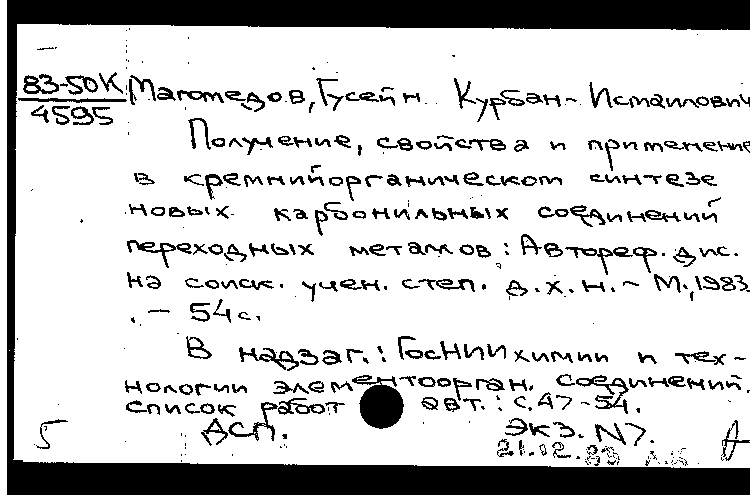 83-50К Магомедов, Гусейн Курбан-Исмаилович
4595
Получение, свойства и применение
в кремнийорганическом синтезе
новых карбонильных соединений
переходных металлов: Автореф. дис.
на соиск. учен. степ. д.х.н. - М., 1983
. - 54 с.
В надзаг.: ГосНИИ химии и тех-
нологии элементоорган. соединений.
Список работ авт.: с. 47-54.
5 ДСП. Экз. N7.
21.12.83